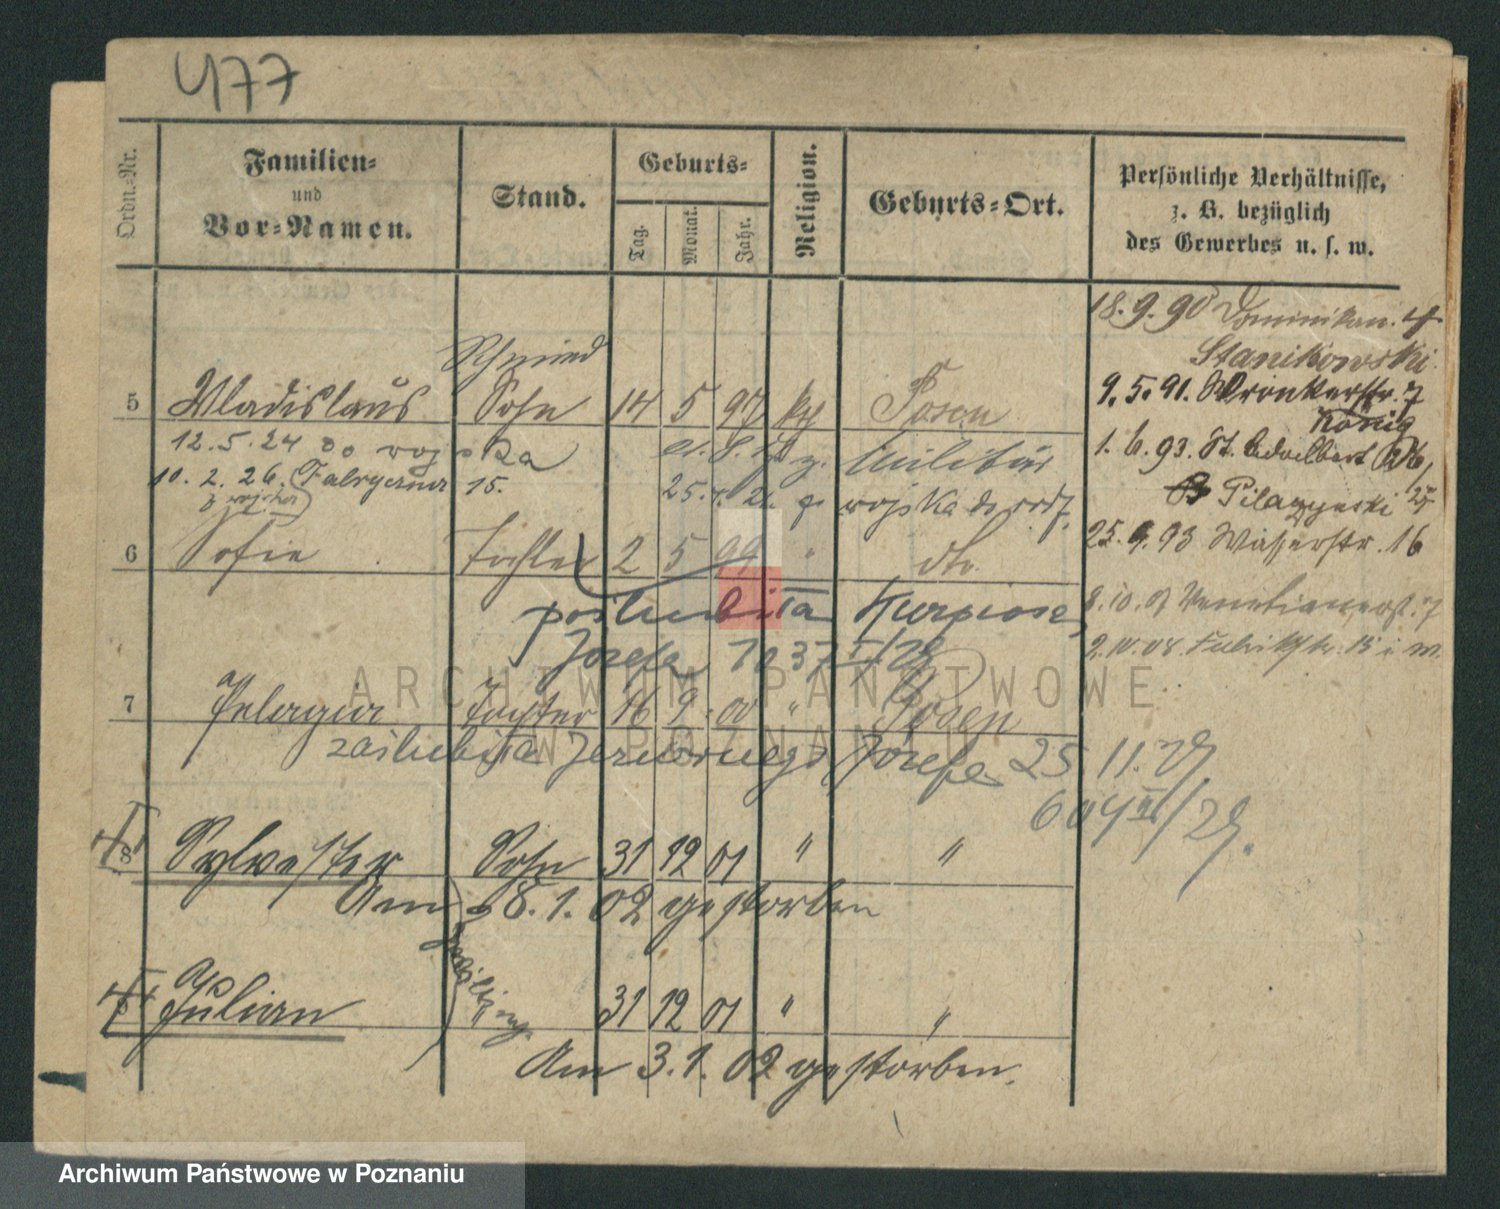 477
Ordn.-Nr.
Familien-
und
Vor-Namen.
Stand.
Geburts-
Tag.
Monat.
Jahr.
Religion.
Geburts-Ort.
Persönliche Verhältnisse,
z. B. bezüglich
des Gewerbes u. s. w.
18.9.90 Dominikan. 4
Stanikowski.
Schmied
5 Wladislaus Sohn 14 5 97 kth Posen
9.5.91. Wronkerstr. 7
König
12.5.24 do wojska z. Militär
1.6.93. St. Adalbert 26,
10. 2. 26. 15. 25. z wojska do
Pilaczynski
6 Sofie Tochter 2 5 99 " dto.
25.9.93 Wasserstr. 16
poślubiła
8.10.07 Venetianerst. 7
Józefa 1037
2.10.08.
ARCHIWUM PAŃSTWOWE
W POZNANIU
7 Pelagia Tochter 16 9. 00 " Posen
zaślubiła Józefa 25.11.29
604 /29.
8 Sylvester Sohn 31 12 01 " "
Am 8.1.02 gestorben
Zwilling
Julian 31 12 01 " "
Am 3.1.02 gestorben.
Archiwum Państwowe w Poznaniu